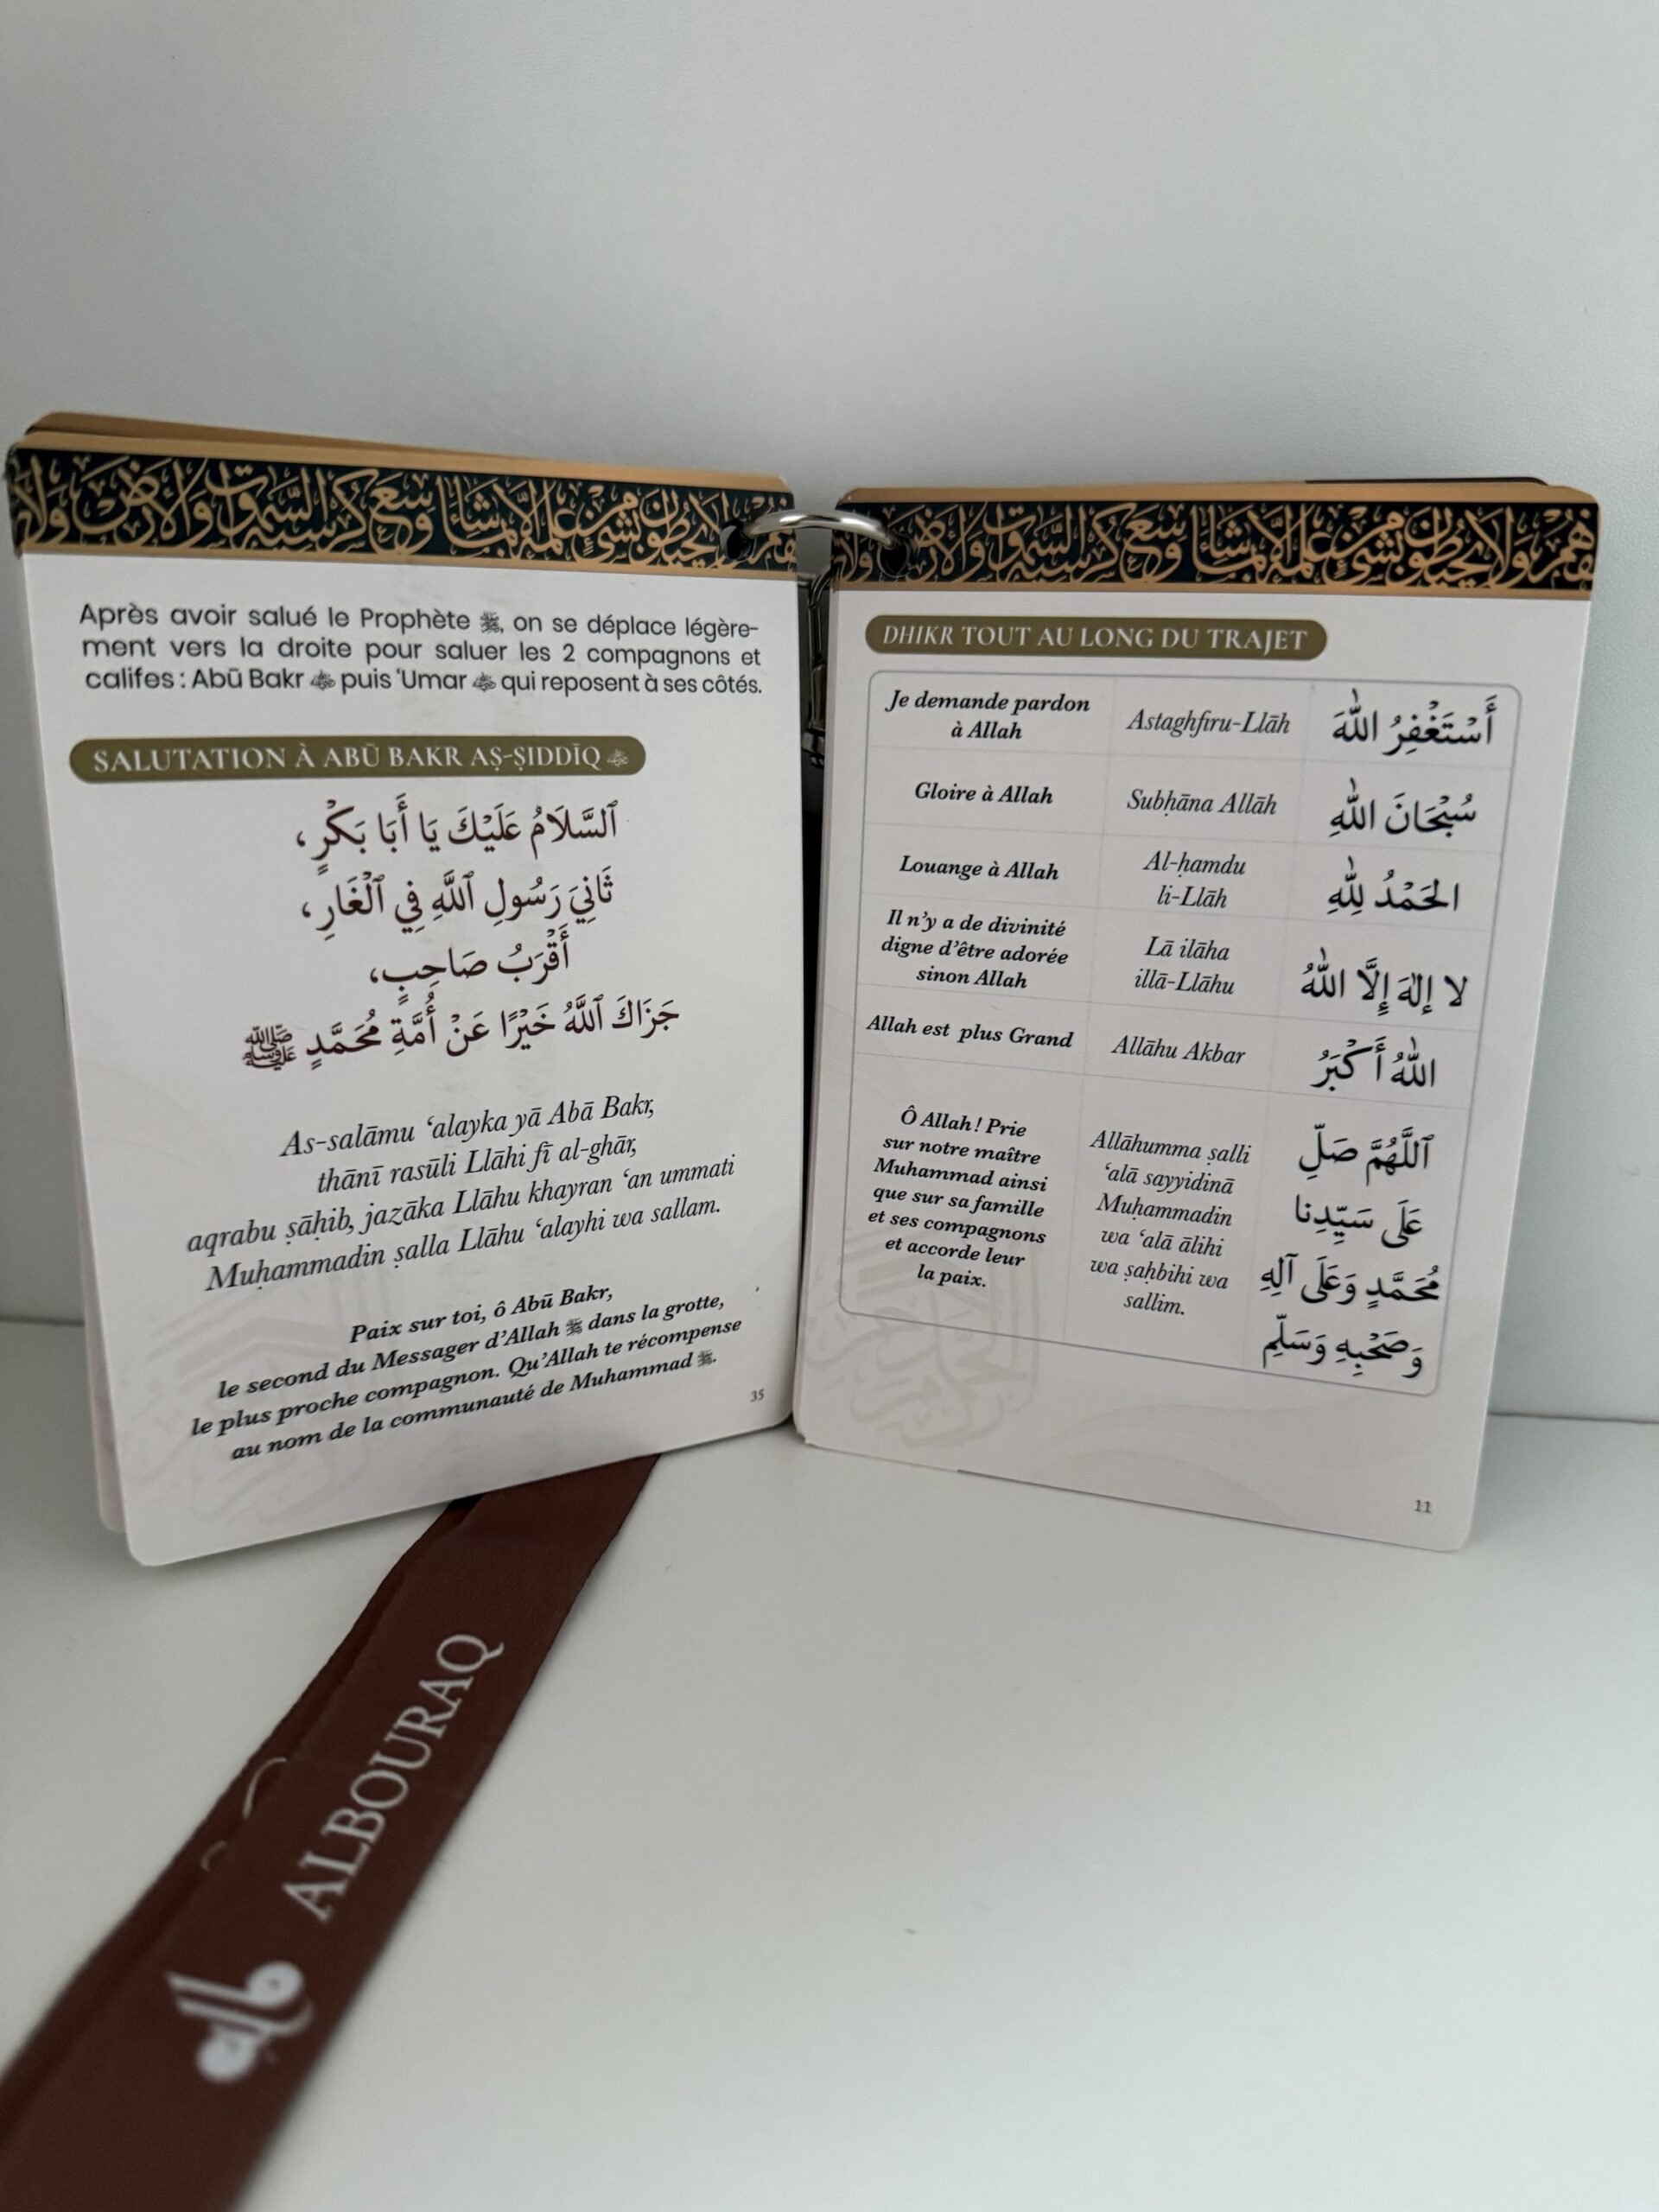 Après avoir salué le Prophète ﷺ, on se déplace légère-
ment vers la droite pour saluer les 2 compagnons et
califes : Abū Bakr puis ‘Umar qui reposent à ses côtés.
SALUTATION À ABŪ BAKR AṢ-ṢIDDĪQ
ٱلسَّلَامُ عَلَيْكَ يَا أَبَا بَكْرٍ،
ثَانِيَ رَسُولِ ٱللَّهِ فِي ٱلْغَارِ،
أَقْرَبُ صَاحِبٍ،
جَزَاكَ ٱللَّهُ خَيْرًا عَنْ أُمَّةِ مُحَمَّدٍ ﷺ
As-salāmu ‘alayka yā Abā Bakr,
thānī rasūli Llāhi fī al-ghār,
aqrabu ṣāḥib, jazāka Llāhu khayran ‘an ummati
Muḥammadin ṣalla Llāhu ‘alayhi wa sallam.
Paix sur toi, ô Abū Bakr,
le second du Messager d’Allah ﷺ dans la grotte,
le plus proche compagnon. Qu’Allah te récompense
au nom de la communauté de Muhammad ﷺ.
35
DHIKR TOUT AU LONG DU TRAJET
Je demande pardon
à Allah
Astaghfiru-Llāh
أَسْتَغْفِرُ اللّٰهَ
Gloire à Allah
Subḥāna Allāh
سُبْحَانَ اللّٰهِ
Louange à Allah
Al-ḥamdu
li-Llāh
الحَمْدُ لِلّٰهِ
Il n’y a de divinité
digne d’être adorée
sinon Allah
Lā ilāha
illā-Llāhu
لا إلهَ إِلَّا اللّٰهُ
Allah est plus Grand
Allāhu Akbar
اللّٰهُ أَكْبَرُ
Ô Allah ! Prie
sur notre maître
Muhammad ainsi
que sur sa famille
et ses compagnons
et accorde leur
la paix.
Allāhumma ṣalli
‘alā sayyidinā
Muḥammadin
wa ‘alā ālihi
wa ṣaḥbihi wa
sallim.
ٱللَّهُمَّ صَلِّ
عَلَى سَيِّدِنا
مُحَمَّدٍ وَعَلَى آلِهِ
وَصَحْبِهِ وَسَلِّم
11
ALBOURAQ